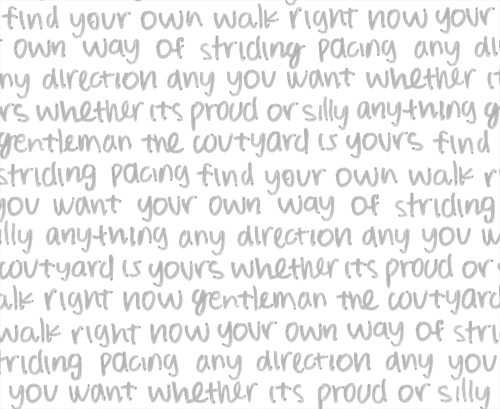 find your own walk right now your
own way of striding pacing any di
ny direction any you want whether i
rs whether its proud or silly anything g
gentleman the coutyard is yours find
striding pacing find your own walk r
you want your own way of striding
illy anything any direction any you w
coutyard is yours whether its proud or
alk right now gentleman the coutyard
walk right now your own way of stri
triding pacing any direction any you
you want whether its proud or silly